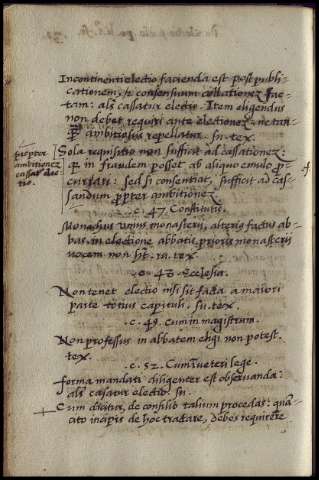 Incontinenti electio facienda est post publi-
cationem, & consensum collationez fac-
tam: als cassatur electio. Item eligendus
non debet requiri ante electionez, ne tan-
q̃ ambitiosus repellatur. su. tex.
Sola requisitio non sufficit ad cassationez:
q̃ in fraudem posset ab aliquo emulo p̱-
curari: Sed si consentiat, sufficit ad cas-
sandum p̱pter ambitionez
propter
ambitionez
cassat elec
tio.
.c. 47. Constitutis.
Monachus unius monasterij, alterius factus ab-
bas, in electione abbatis prioris monasterij
vocem non hẽt. su. tex.
.c. 48 Ecclesia.
Non tenet electio nisi sit facta a maiori
parte totius capituli. su. tex.
.c. 49. Cum in magistrum.
Non professus in abbatem eligi non potest.
tex.
.c. 52. Cum in veteri lege.
Forma mandati diligenter est observanda:
als cassatur electio. su.
Cum dicitur, de consilio talium procedas: quã-
cato incipis de hoc tractare, debes requirere